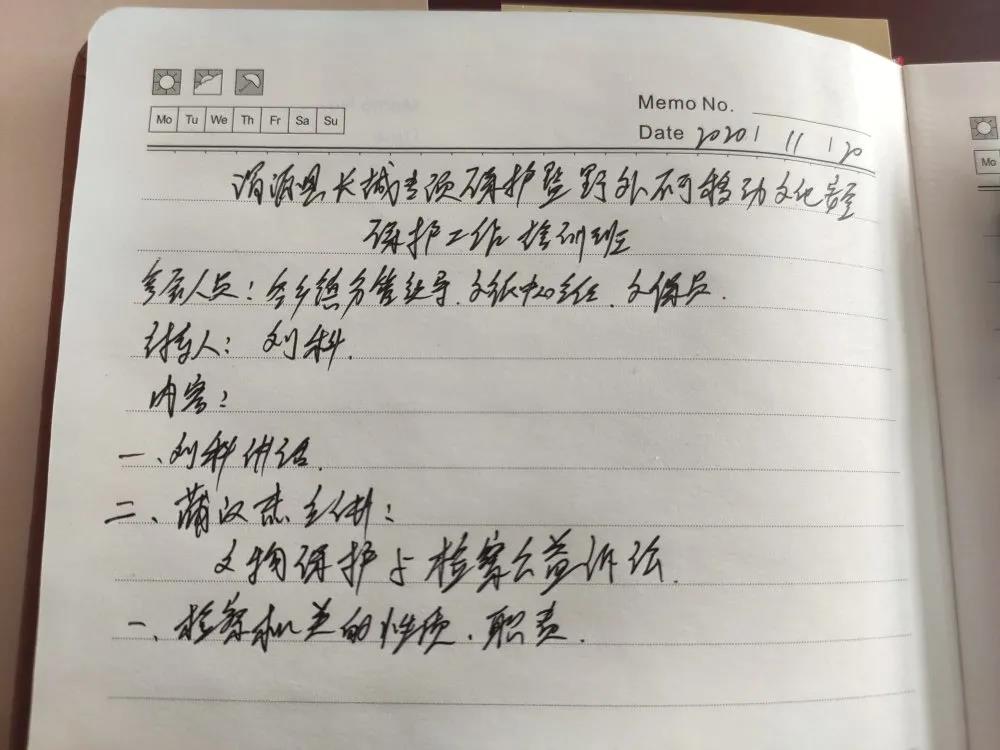 Mo Tu We Th Fr Sa Su
Memo No.
Date 2020/11/20
渭源县长城专项保护暨野外不可移动文化安全
保护工作培训班
参会人员：各乡镇分管领导、文化中心主任、文保员.
主持人：刘科.
内容：
一、刘科讲话.
二、蒲汉杰主讲：
文物保护与检察公益诉讼.
一、检察机关的性质、职责.
Mo